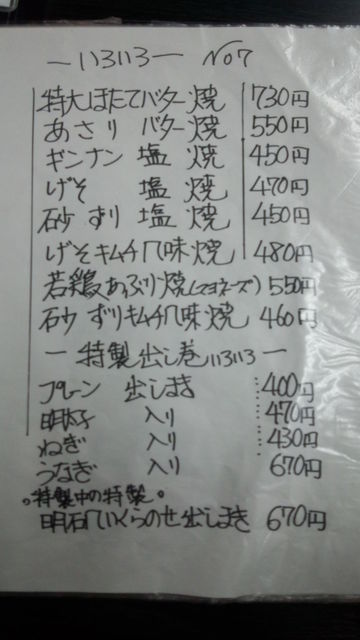 ーいろいろー No7
特大ほたてバター焼 730円
あさり バター焼 550円
ギンナン 塩 焼 450円
げそ 塩 焼 470円
砂ずり 塩 焼 450円
げそキムチ八味焼 480円
若鶏あぶり焼(マヨネーズ) 550円
砂ずりキムチ八味焼 460円
ー特製出し巻いろいろー
プレーン 出しまき 400円
明太子 入り 470円
ねぎ 入り 430円
うなぎ 入り 670円
。特製中の特製。
いくらのせ出しまき 670円